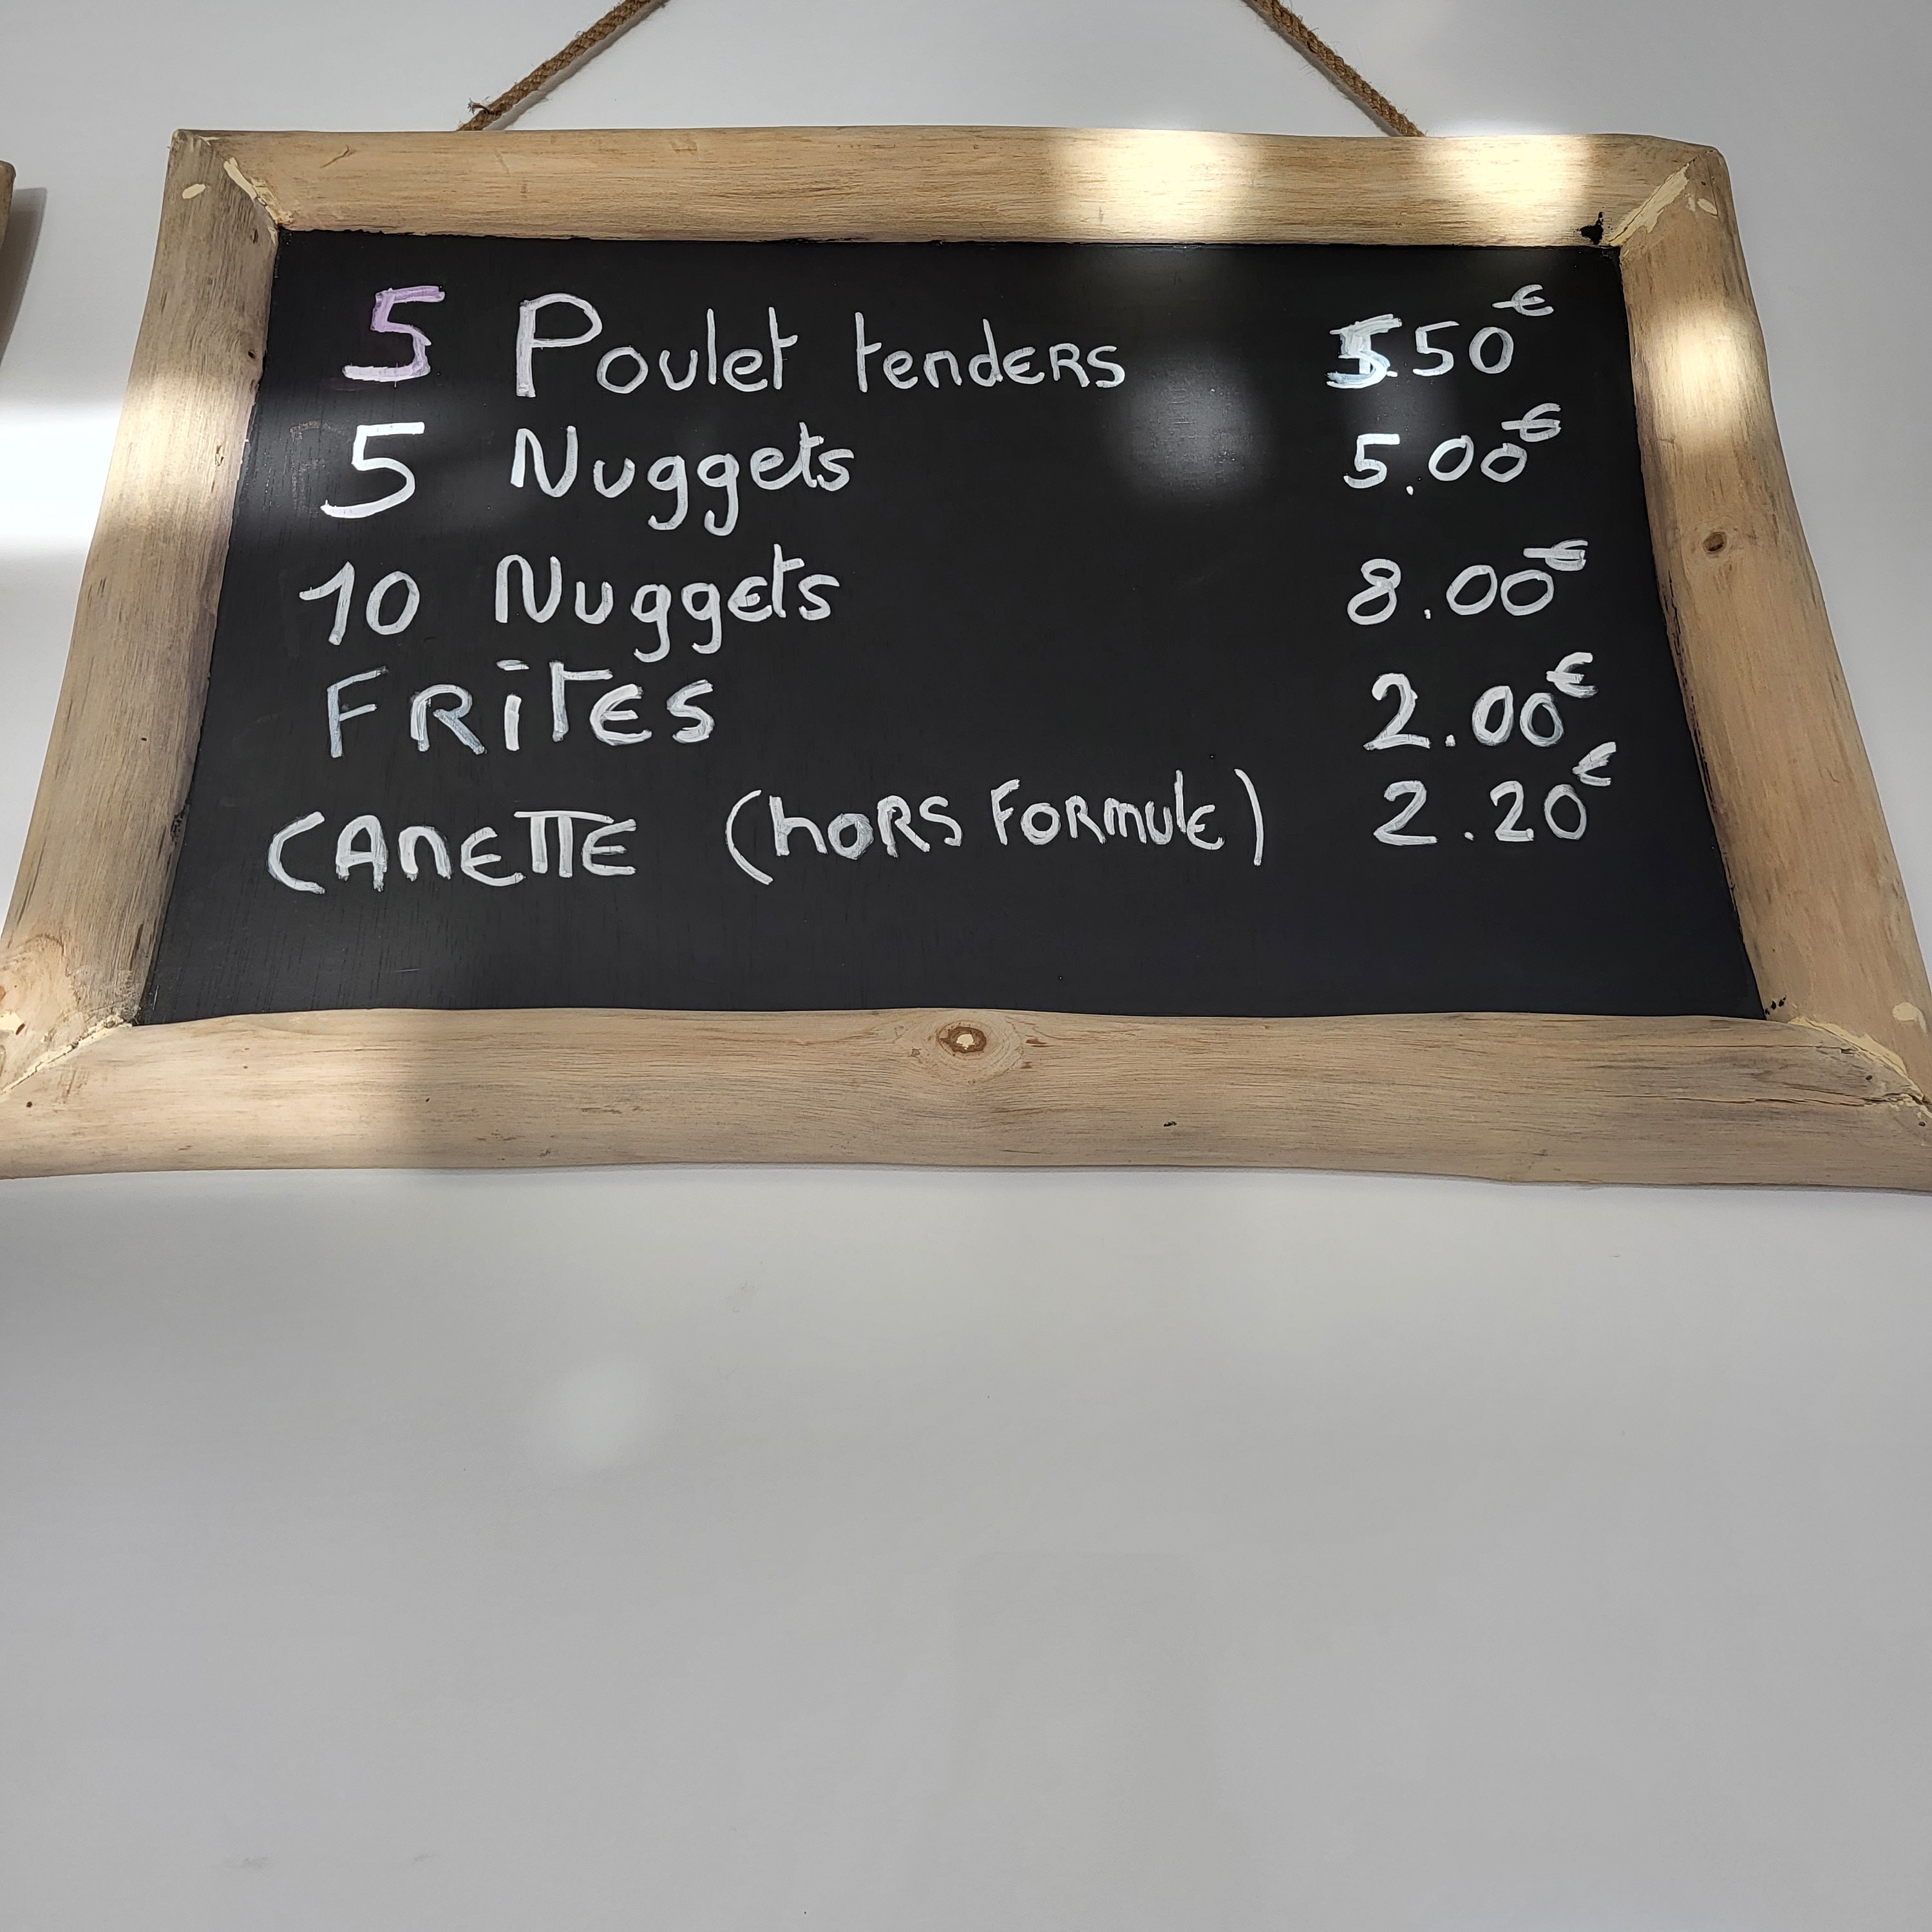 5 Poulet tenders 5.50€
5 Nuggets 5.00€
10 Nuggets 8.00€
FRITES 2.00€
CANETTE (HORS FORMULE) 2.20€